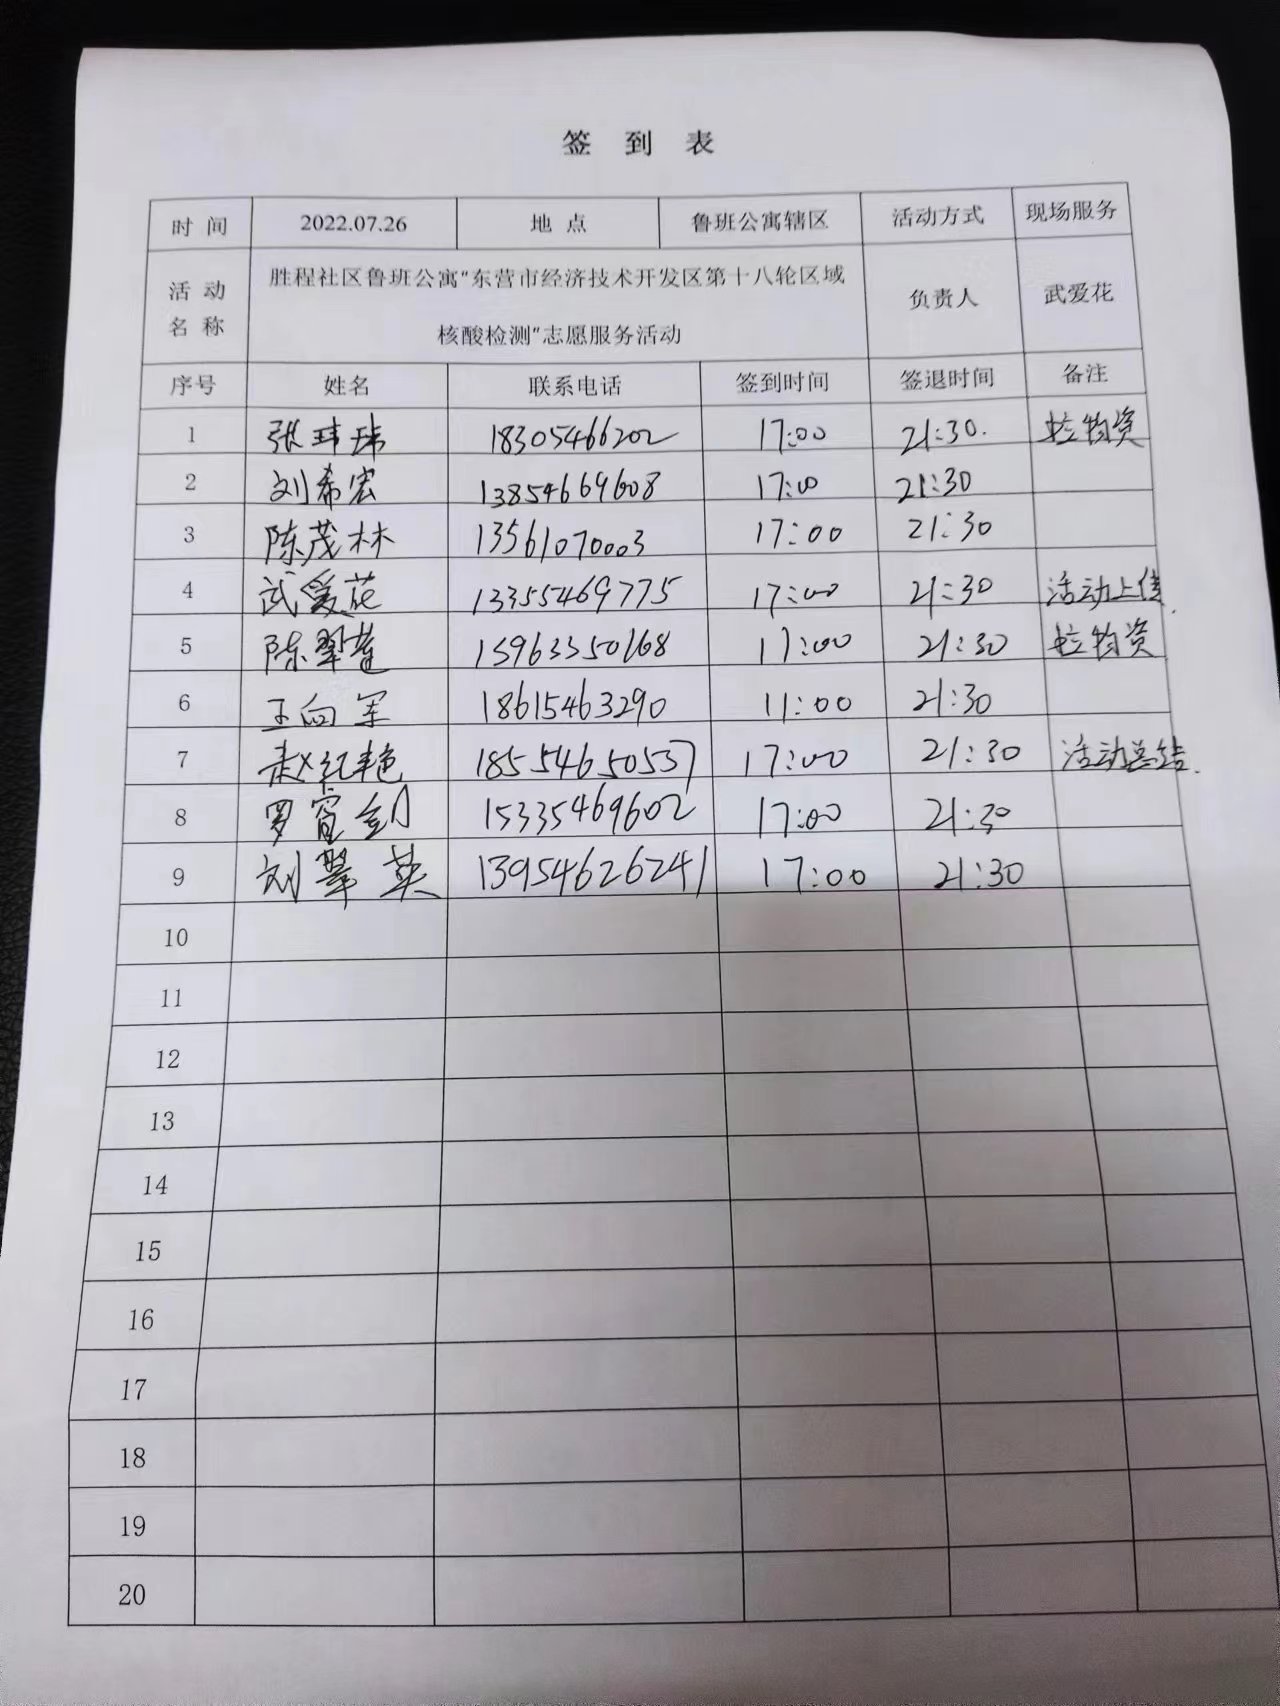 签 到 表
时 间 2022.07.26 地 点 鲁班公寓辖区 活动方式 现场服务
活 动 名 称 胜程社区鲁班公寓"东营市经济技术开发区第十八轮区域 负责人 武爱花
核酸检测"志愿服务活动
序号 姓名 联系电话 签到时间 签退时间 备注
1 张玮玮 18305466202 17:00 21:30. 拉物资
2 刘希宏 13854669608 17:00 21:30
3 陈茂林 13561070003 17:00 21:30
4 武爱花 13355469775 17:00 21:30 活动上传.
5 陈翠莲 15963350168 17:00 21:30 拉物资
6 王向军 18615463290 11:00 21:30
7 赵红艳 18554650537 17:00 21:30 活动总结.
8 罗 剑 15335469602 17:00 21:30
9 刘翠英 13954626241 17:00 21:30
10
11
12
13
14
15
16
17
18
19
20